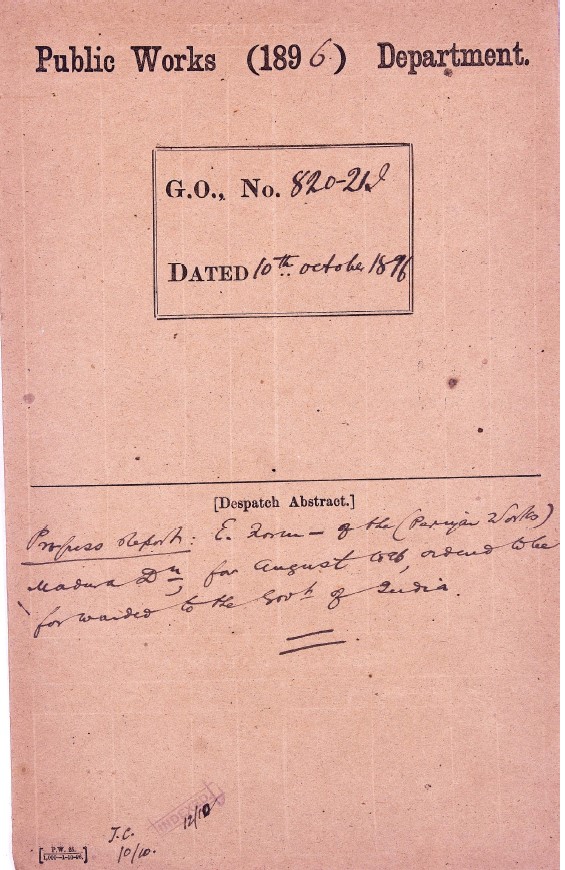 Public Works (1896) Department.
G.O., No. 820-21
DATED 10th october 1896
[Despatch Abstract.]
Progress Report: E. Form – of the (Periyar Works)
Madura Dn, for August 1896, ordered to be
forwarded to the Govt of India.
INDEXED
12/10
J.C.
10/10.
[P.W. 65.
1,000—1-10-96.]